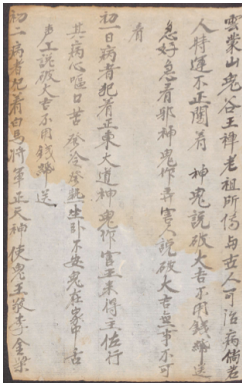 雲蒙山鬼谷王禅老祖所傳与世人可治病倘若
人時運不正闖着神鬼説破大吉不用錢馱送
急好急着邪神鬼作弄害人説破大吉無事不可
看
初一日病者犯着正東大道神鬼作害王来得主佐行
其病心嘔口苦發冷發熱坐卧不安鬼在家中舌
声上説破大吉不用錢馱送
初二病者犯着白馬將軍正天神使鬼王敬李金梁